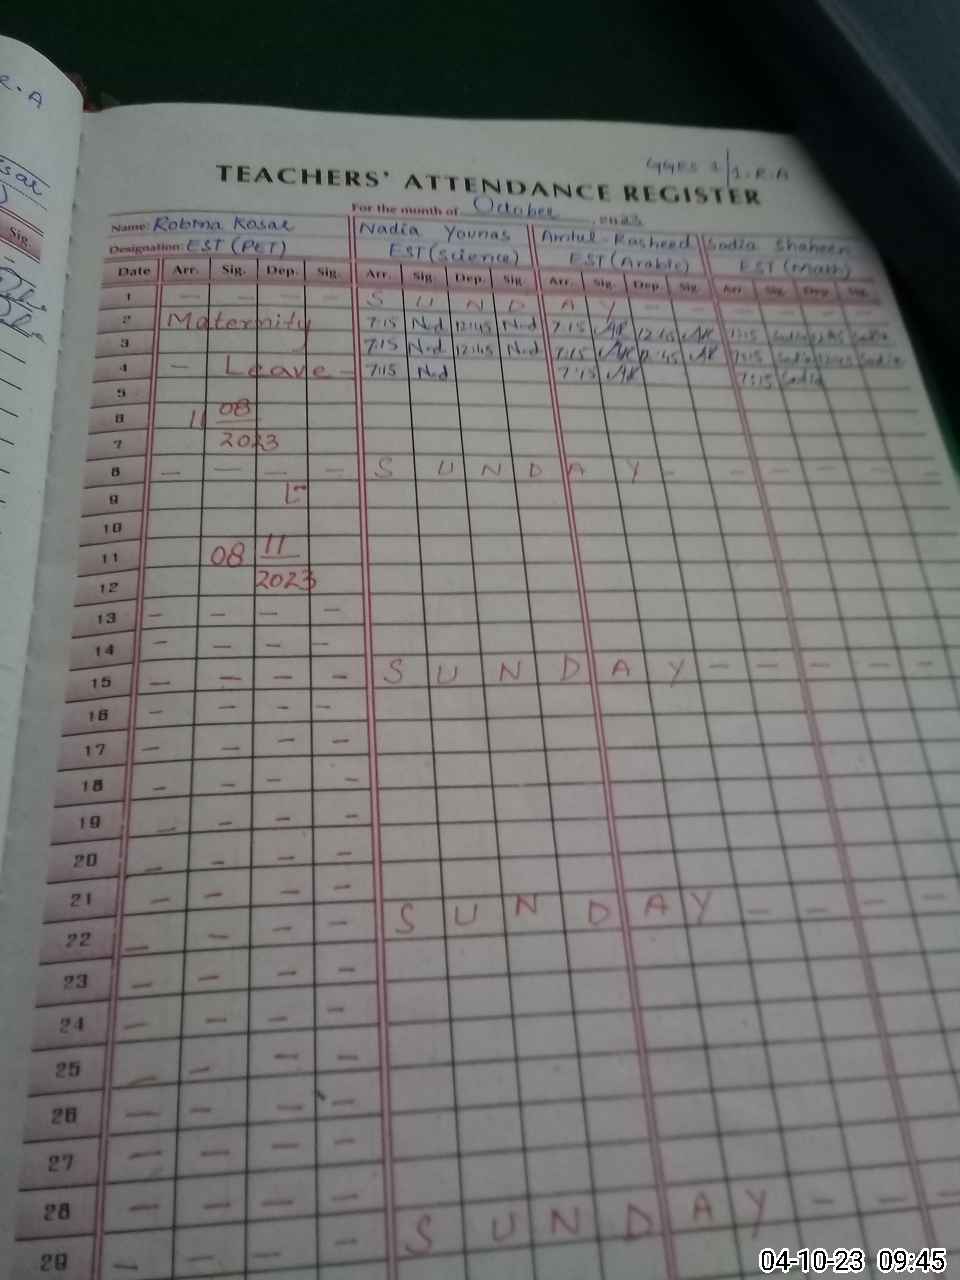 R.A
GGES 1/1.R.A
TEACHERS' ATTENDANCE REGISTER
For the month of October, 2023
Name: Robina Kosar Nadia Younas Amtul-Rasheed Sadia Shaheen
Designation: EST (PET) EST (science) EST (Arabic) EST (Math)
Sig.
Date Arr. Sig. Dep. Sig. Arr. Sig. Dep. Sig. Arr. Sig. Dep. Sig. Arr. Sig. Dep. Sig.
1 — — — — S U N D A Y — — — — —
2 Maternity 7:15 Nad 12:45 Nad 7:15 AR 12:45 AR 7:15 Sadia 12:45 Sadia
3 7:15 Nad 12:45 Nad 7:15 AR 12:45 AR 7:15 Sadia 12:45 Sadia
4 — Leave — 7:15 Nad 7:15 AR 7:15 Sadia
5
6 11 08
7 2023
8 — — — — S U N D A Y — — — — —
9 to
10
11 08 11
12 2023
13 — — — —
14 — — — —
15 — — — — S U N D A Y — — — — —
16 — — — —
17 — — — —
18 — — — —
19 — — — —
20 — — — —
21 — — — —
22 — — — — S U N D A Y — — — —
23 — — — —
24 — — — —
25 — — — —
26 — — — —
27 — — — —
28 — — — —
29 — — — — S U N D A Y — — —
04-10-23 09:45